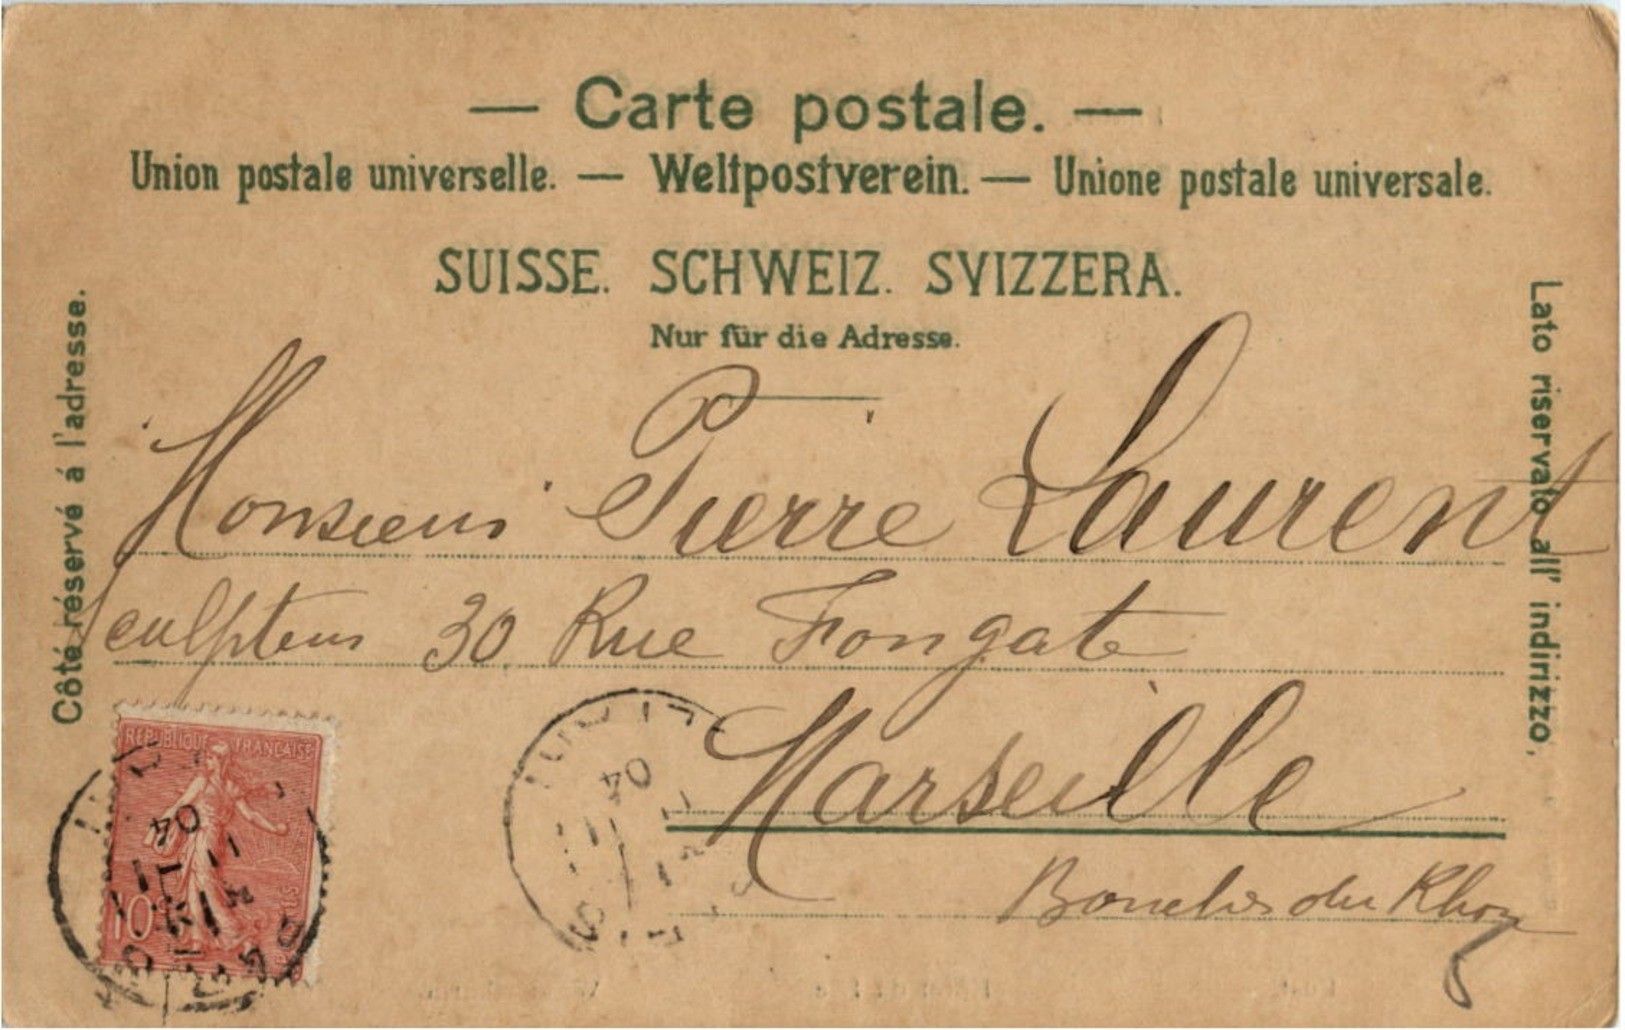 — Carte postale. —
Union postale universelle. — Weltpostverein. — Unione postale universale.
SUISSE. SCHWEIZ. SVIZZERA.
Nur für die Adresse.
Côté réservé á l'adresse.
Lato riservato all' indirizzo.
Monsieur Pierre Laurent
Sculpteur 30 Rue Fongate
Marseille
Bouches du Rhone
REPUBLIQUE FRANÇAISE
10
04
04